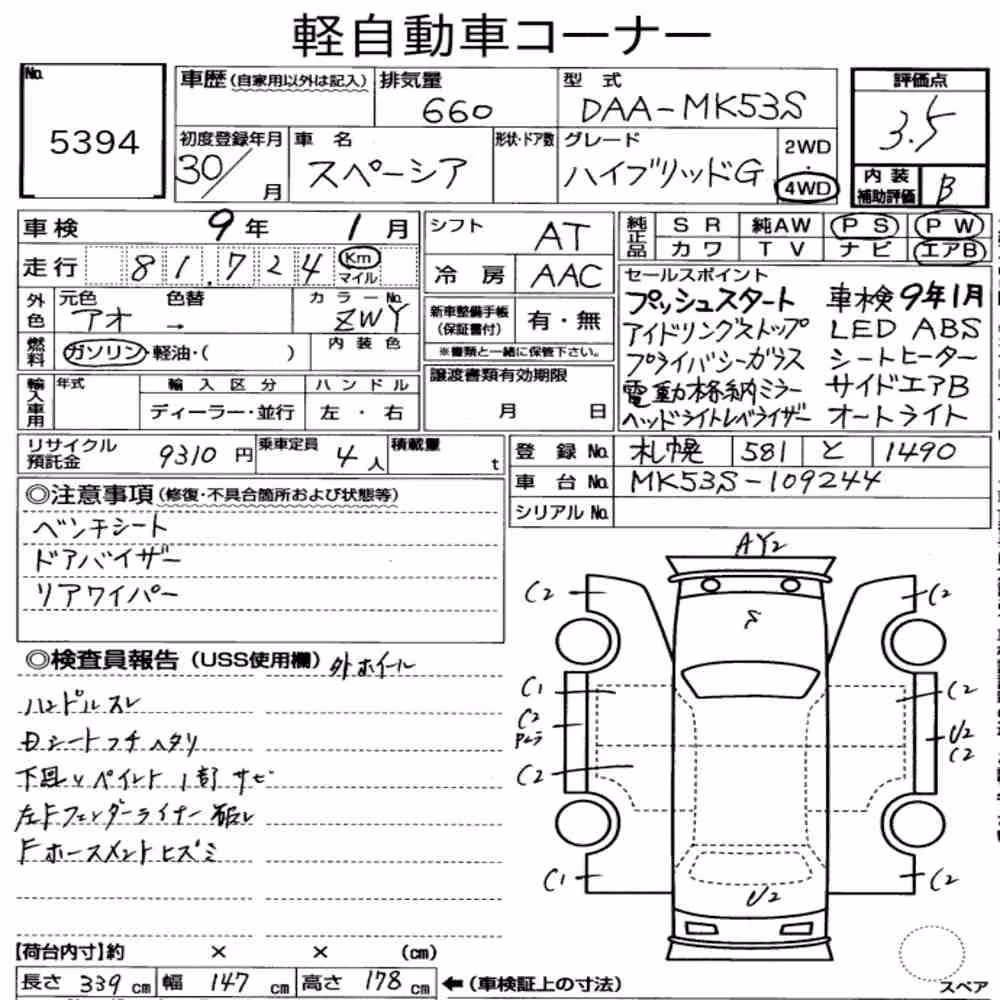 軽自動車コーナー
No. 5394
車歴(自家用以外は記入) 排気量 660 型式 DAA-MK53S 評価点 3.5
初度登録年月 30/ 月 車名 スペーシア 形状・ドア数 グレード ハイブリッドG 2WD・4WD 内装補助評価 B
車検 9年 1月
走行 81.724 Km マイル
外色 元色 アオ → 色替 カラーNo. ZWY
燃料 ガソリン・軽油・( ) 内装色
輸入車用 年式 輸入区分 ディーラー・並行 ハンドル 左・右
シフト AT
冷房 AAC
新車整備手帳(保証書付) 有・無
※書類と一緒に保管下さい。
譲渡書類有効期限
月 日
純正品 SR 純AW PS PW
カワ TV ナビ エアB
セールスポイント
プッシュスタート 車検9年1月
アイドリングストップ LED ABS
プライバシーガラス シートヒーター
電動格納ミラー サイドエアB
ヘッドライトレベライザー オートライト
リサイクル預託金 9310円 乗車定員 4人 積載量 t
登録No. 札幌 581 と 1490
車台No. MK53S-109244
シリアルNo.
◎注意事項(修復・不具合箇所および状態等)
ベンチシート
ドアバイザー
リアワイパー
◎検査員報告(USS使用欄) 外ホイール
ハンドルスレ
Dシートフチヘタリ
下回りペイント1部サビ
左Fフェンダーライナー
Fホースメントヒズミ
AY2
C2 C2
C1 C2
C2 U2
C2
C2
C1 U2 C2
【荷台内寸】約 × × (cm)
長さ 339cm 幅 147cm 高さ 178cm ←(車検証上の寸法)
スペア